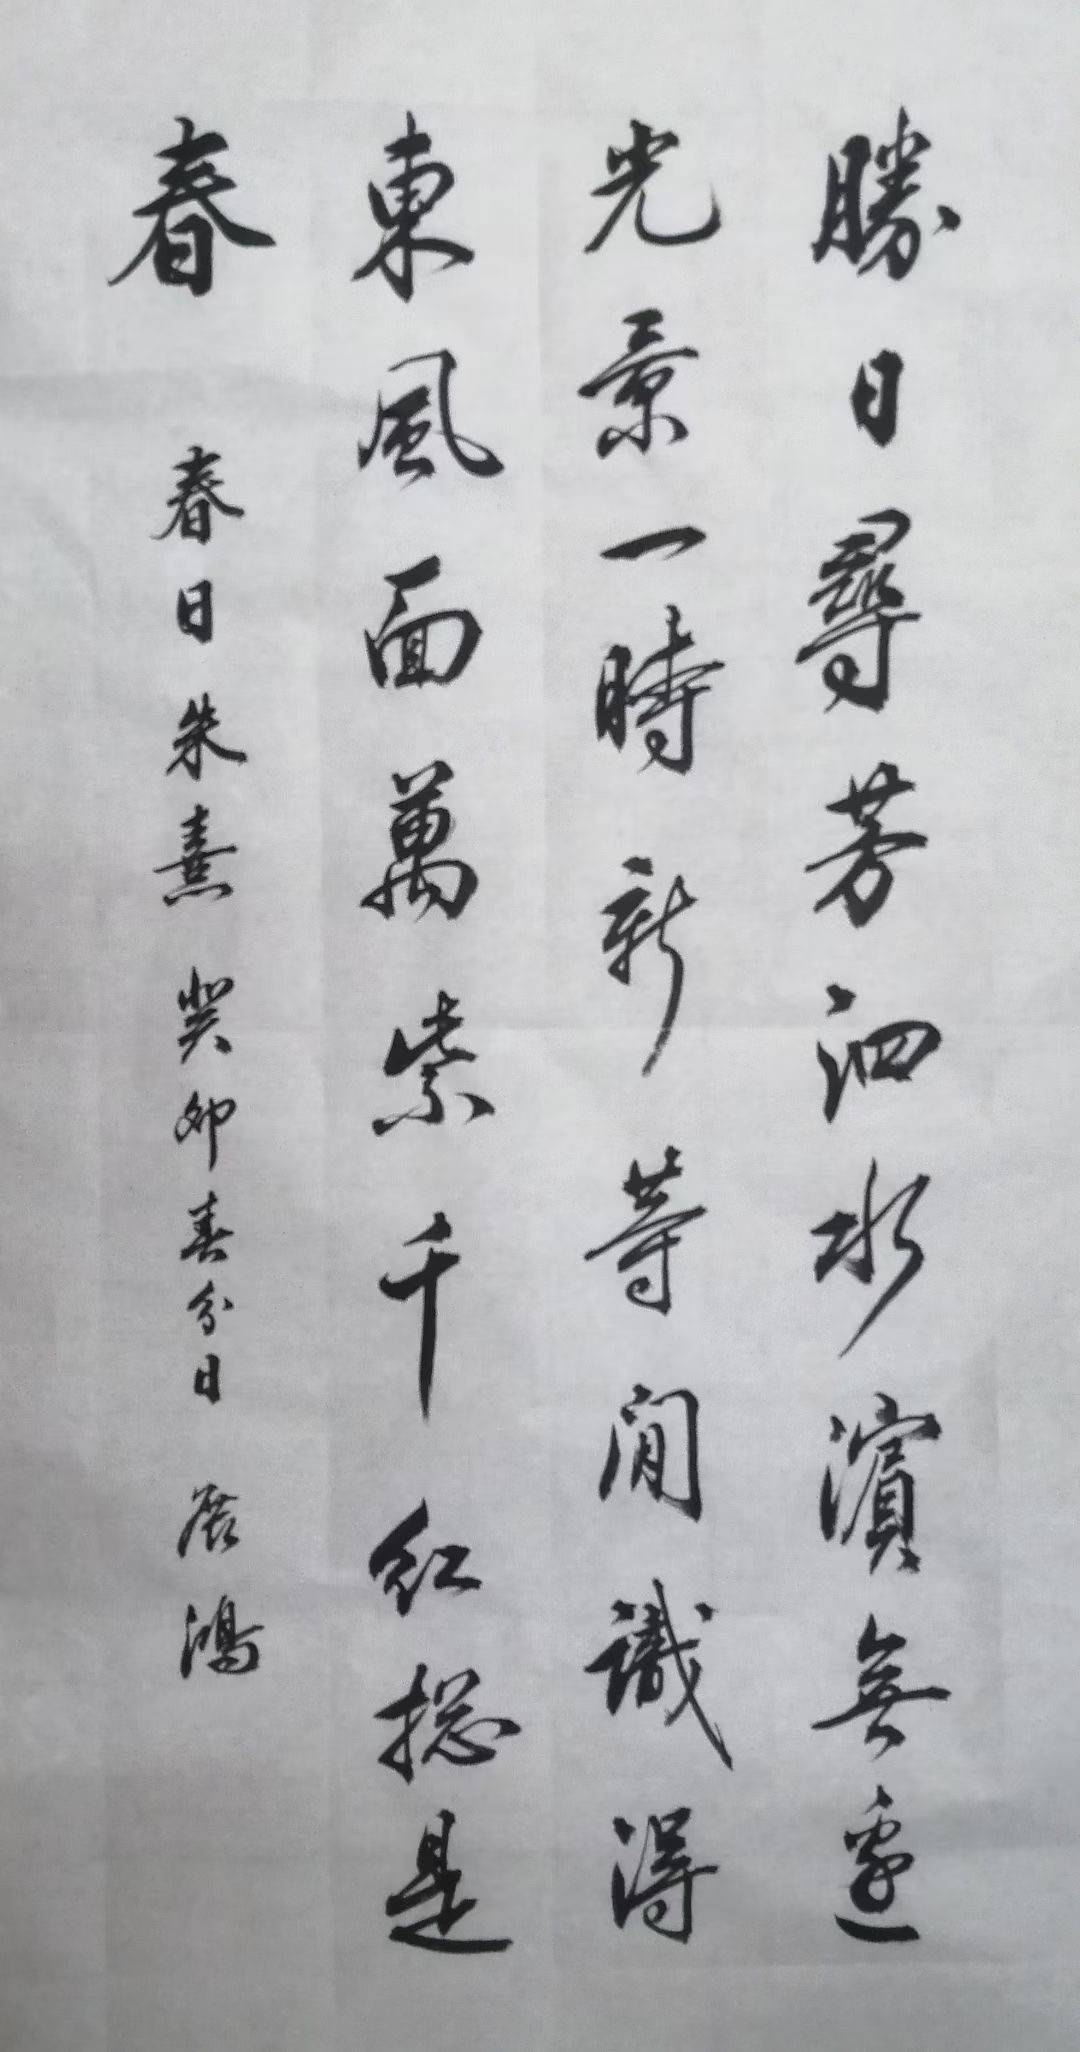 勝日尋芳泗水濱無邊
光景一時新等閒識得
東風面萬紫千紅揔是
春 春日朱熹 癸卯春分日 啓鴻